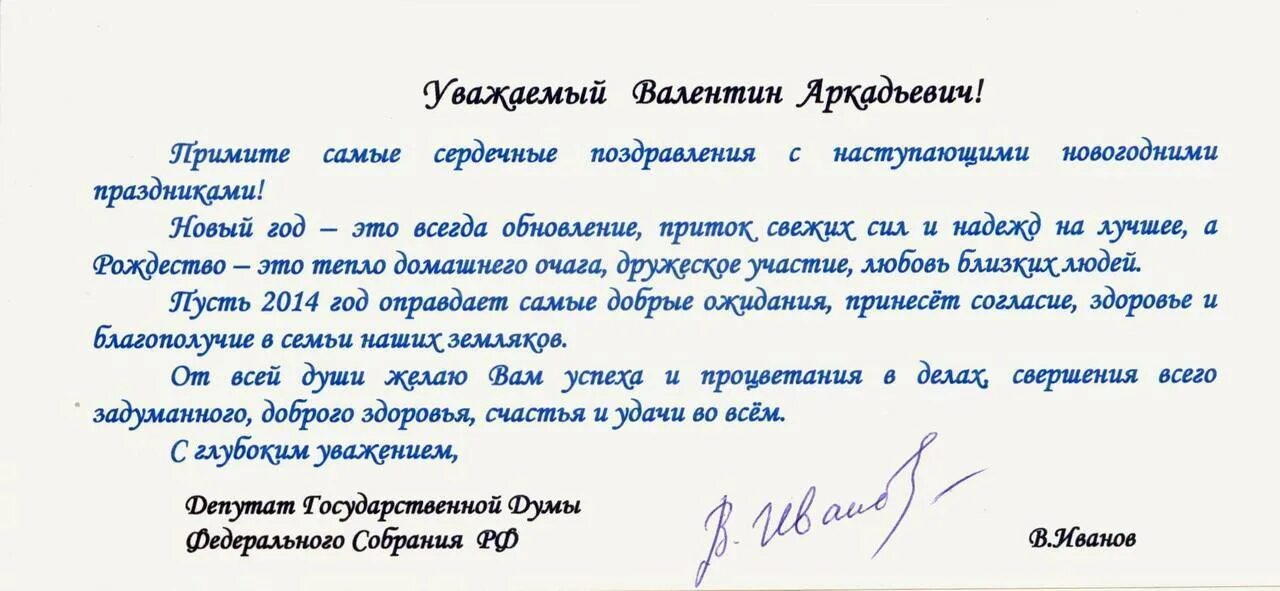 Уважаемый Валентин Аркадьевич!
Примите самые сердечные поздравления с наступающими новогодними
праздниками!
Новый год – это всегда обновление, приток свежих сил и надежд на лучшее, а
Рождество – это тепло домашнего очага, дружеское участие, любовь близких людей.
Пусть 2014 год оправдает самые добрые ожидания, принесёт согласие, здоровье и
благополучие в семьи наших земляков.
От всей души желаю Вам успеха и процветания в делах, свершения всего
задуманного, доброго здоровья, счастья и удачи во всём.
С глубоким уважением,
Депутат Государственной Думы
Федерального Собрания РФ
В. Иванов
В.Иванов